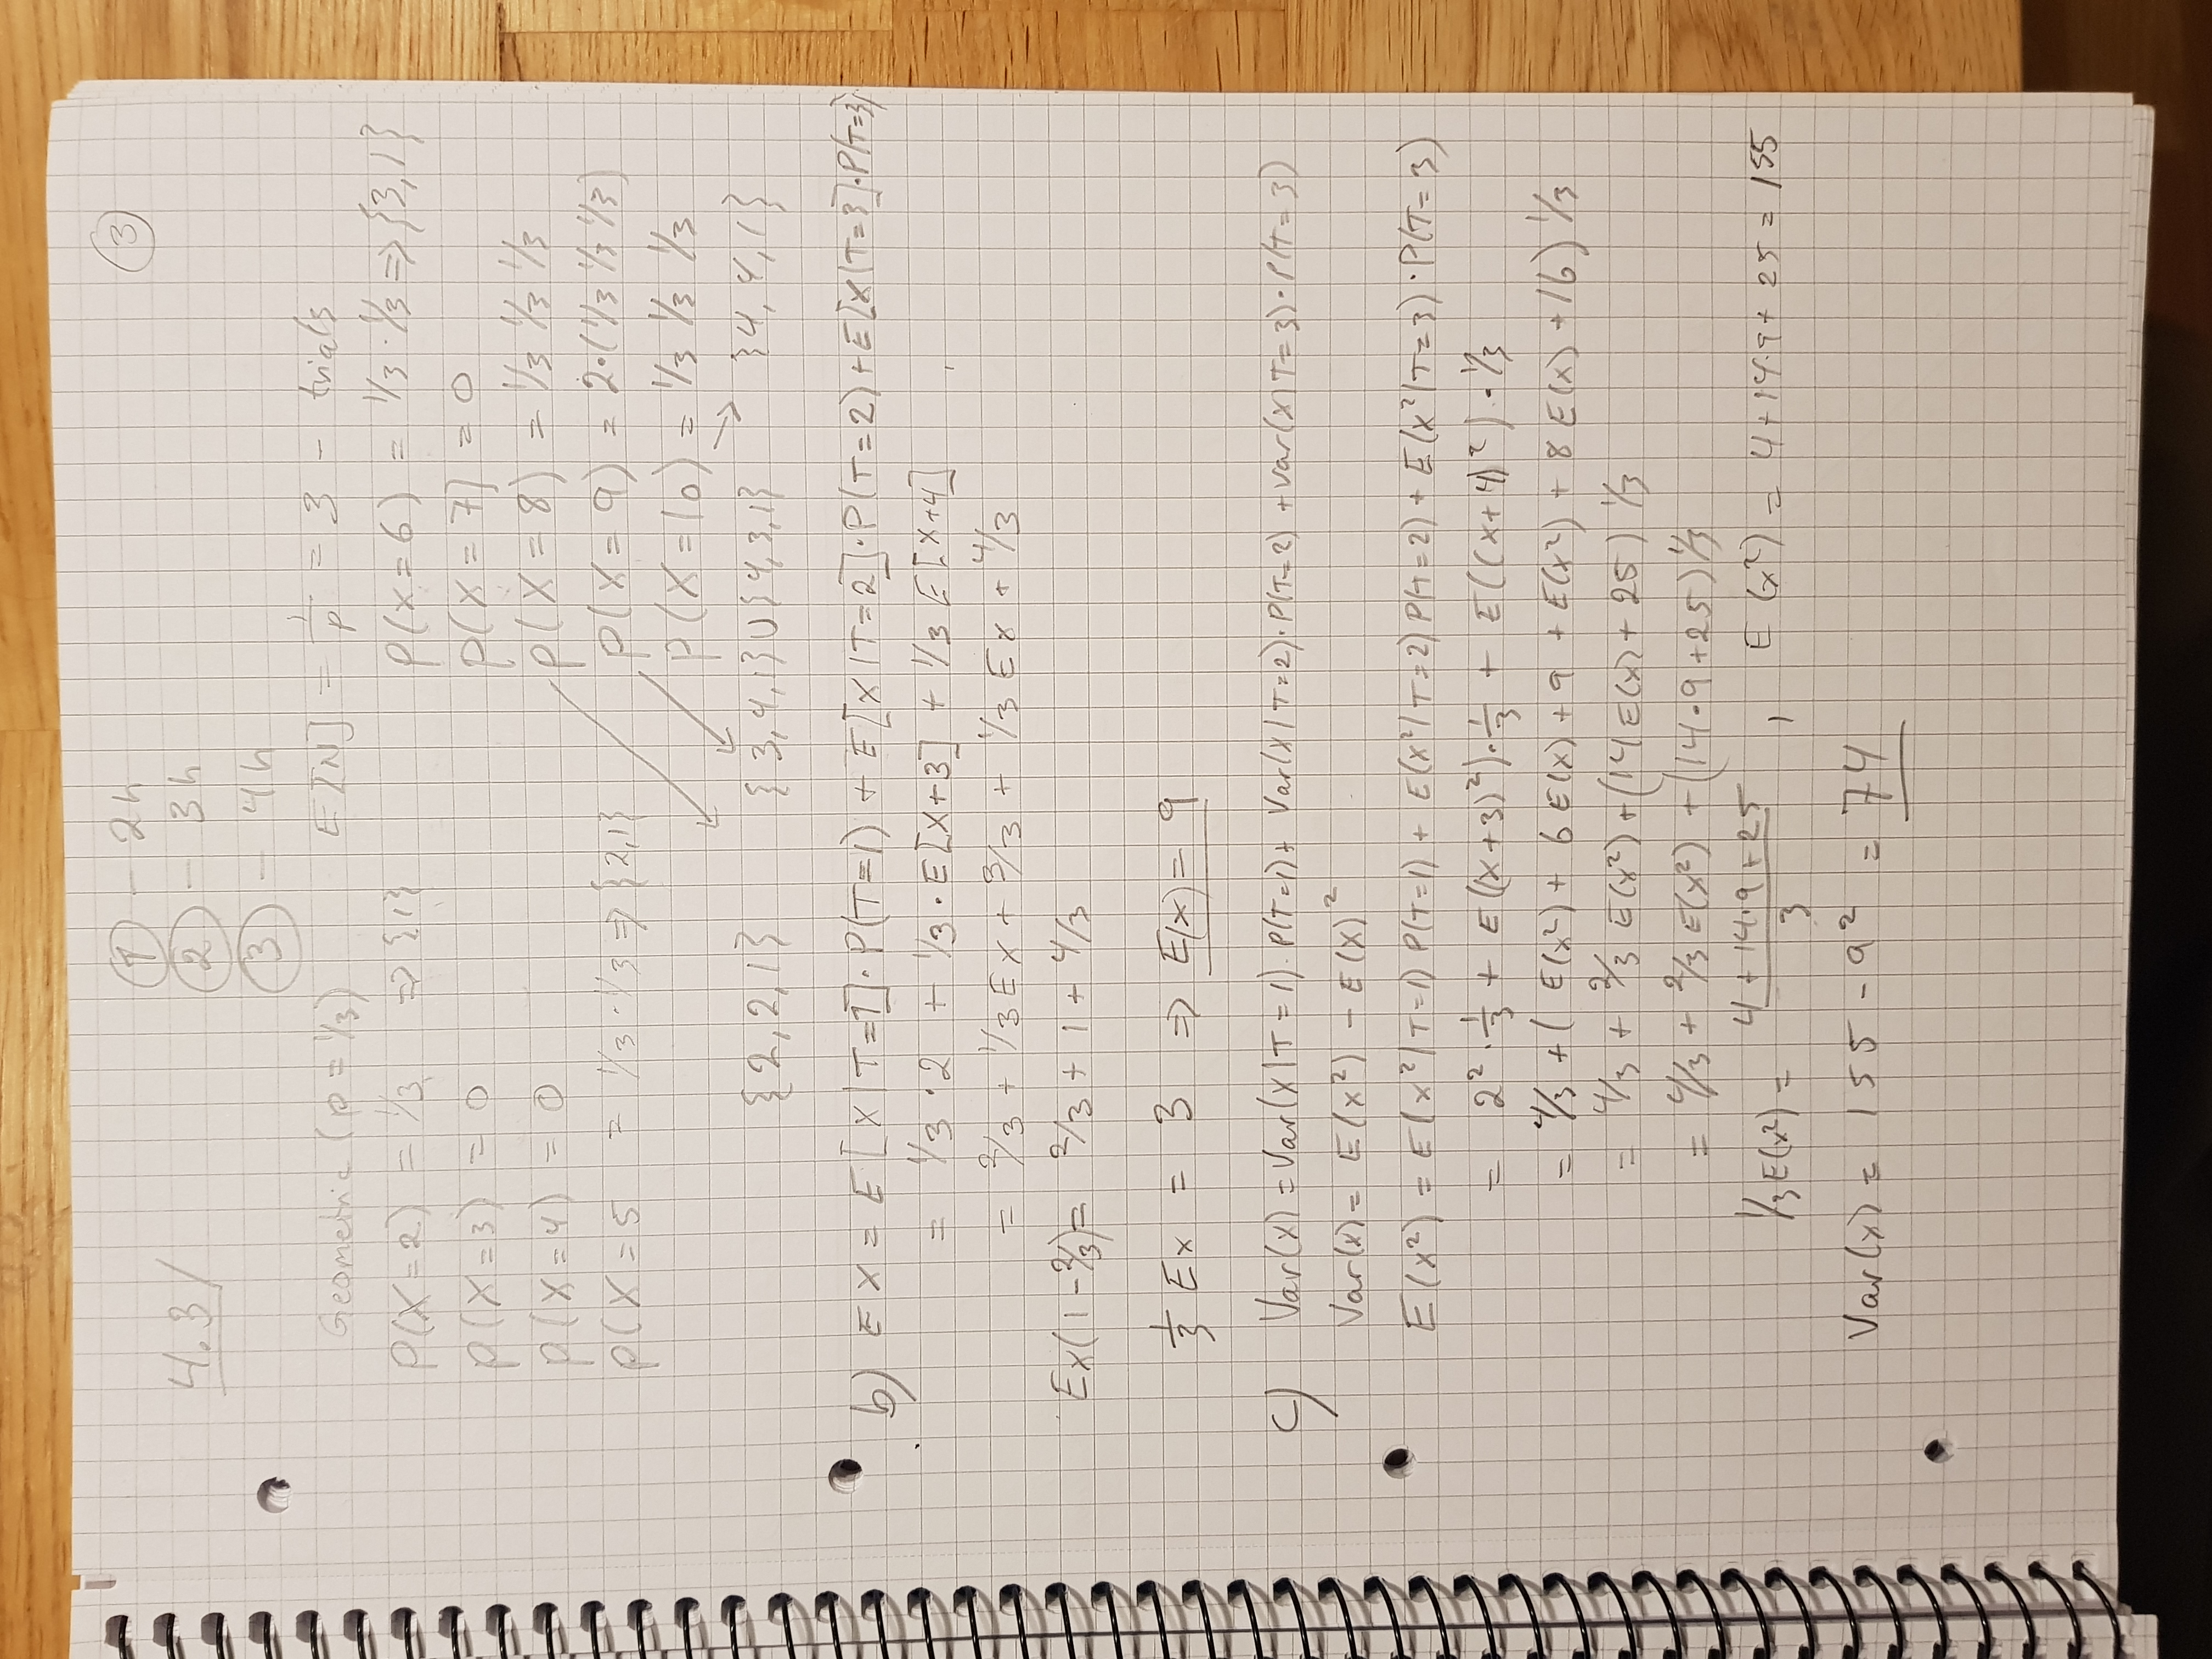 ① - 2h
③
4.3/
② - 3h
③ - 4h
Geometric (p = 1/3) E[N] = 1/p = 3 - trials
P(X=2) = 1/3 => {1}
P(X=6) = 1/3 · 1/3 => {3,1}
P(X=3) = 0
P(X=7] = 0
P(X=4) = 0
P(X=8) = 1/3 1/3 1/3
P(X=5 = 1/3 · 1/3 => {2,1}
P(X=9) = 2·(1/3 1/3 1/3)
P(X=10) = 1/3 1/3 1/3
{2,2,1} {3,4,1} ∪ {4,3,1} {4,4,1}
b) EX = E[X|T=1]·P(T=1) + E[X|T=2]·P(T=2) + E[X|T=3]·P(T=3)
= 1/3 · 2 + 1/3 · E[X+3] + 1/3 E[X+4]
= 2/3 + 1/3 EX + 3/3 + 1/3 EX + 4/3
EX(1-2/3) = 2/3 + 1 + 4/3
1/3 EX = 3 => E(X) = 9
c) Var(X) = Var(X|T=1)·P(T=1) + Var(X|T=2)·P(T=2) + Var(X|T=3)·P(T=3)
Var(X) = E(X²) - E(X)²
E(X²) = E(X²|T=1) P(T=1) + E(X²|T=2) P(T=2) + E(X²|T=3)·P(T=3)
= 2² · 1/3 + E((X+3)²)·1/3 + E((X+4)²)·1/3
= 4/3 + (E(X²) + 6E(X) + 9 + E(X²) + 8E(X) + 16) 1/3
= 4/3 + 2/3 E(X²) + (14E(X) + 25) 1/3
= 4/3 + 2/3 E(X²) + (14·9+25) 1/3
1/3 E(X²) = 4+14·9+25 / 3 , E(X²) = 4+14·9+25 = 155
Var(X) = 155 - 9² = 74